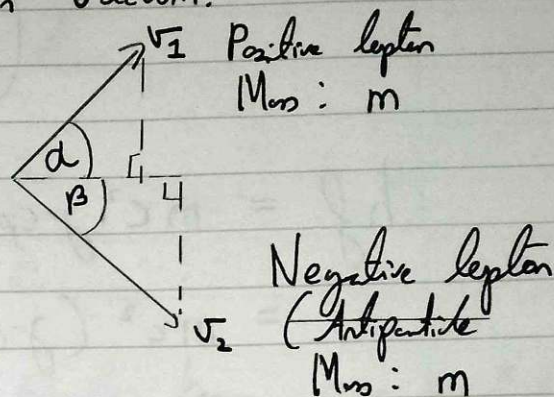 Vacuum.
v1 Positive lepton
Mass : m
α
β
Negative lepton
v2 (Antiparticle
Mass : m